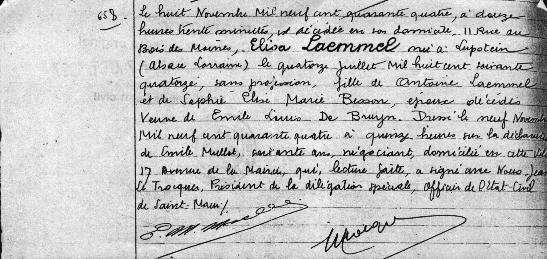 658
Le huit Novembre Mil neuf cent quarante quatre, à douze
heures trente minutes, est décédée en son domicile, 11 Rue au
Bois des Moines, Elisa Laemmel née à
(Alsace Lorraine) le quatorze Juillet Mil huit cent soixante
quatorze, sans profession, fille de Antoine Laemmel
et de Sophie Elise Marie Besson, époux décédés
Veuve de Emile Louis De Bruyn. Dressé le neuf Novembre
Mil neuf cent quarante quatre à quinze heures sur la déclaration
de Emile Mullot, soixante ans, négociant, domicilié en cette Ville
17 Avenue de la Mairie, qui, lecture faite, a signé avec Nous, Jean
Le Trocquer, Président de la délégation spéciale, Officier de l'état Civil
de Saint-Maur/.